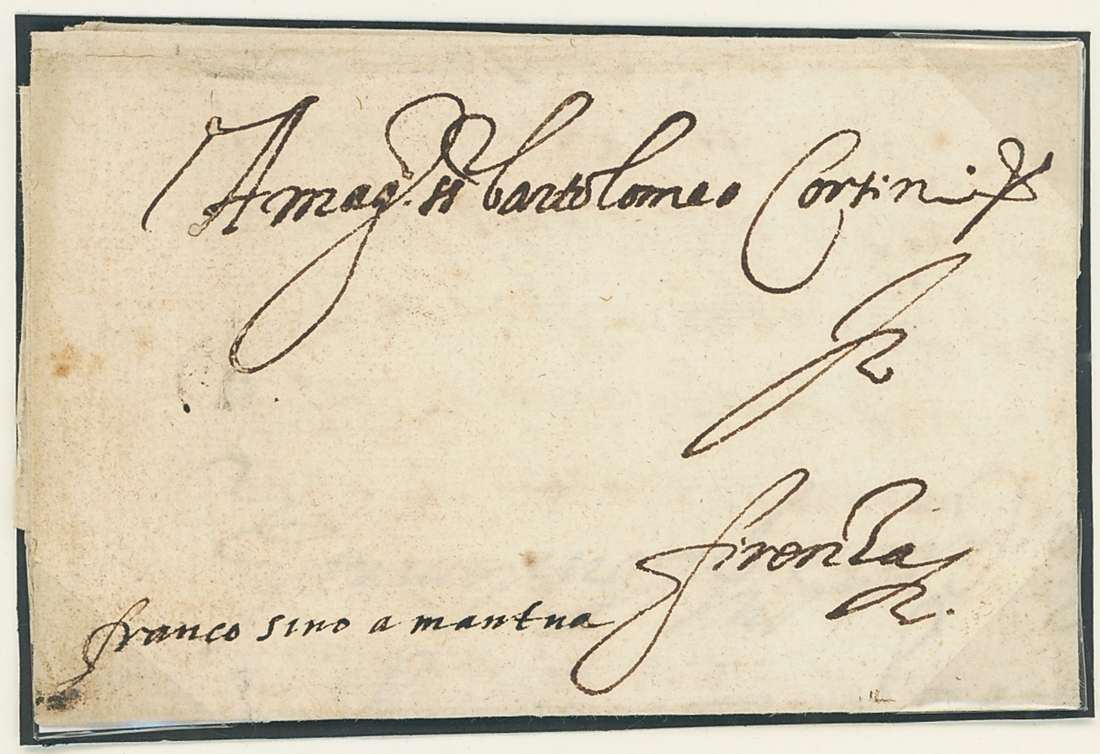 A mag. sr bartolomeo Cortini
firenza
franco sino a mantua